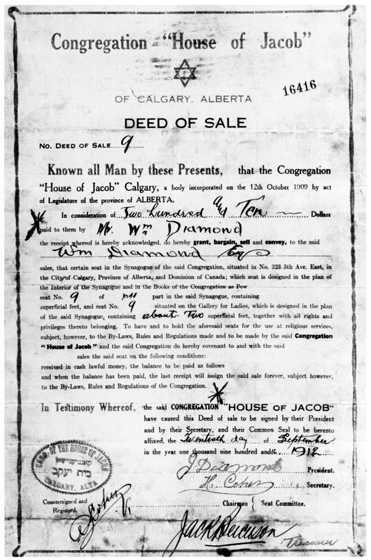 Congregation "House of Jacob"
16416
OF CALGARY, ALBERTA
DEED OF SALE
No. DEED OF SALE 9
Known all Man by these Presents, that the Congregation
"House of Jacob" Calgary, a body incorporated on the 12th October 1909 by act
of Legislature of the province of ALBERTA.
In consideration of Two hundred & Ten Dollars
paid to them by Mr. Wm Diamond
the receipt whereof is hereby acknowledged, do hereby grant, bargain, sell and convey, to the said
Wm Diamond Esq
sales, that certain seat in the Synagogue of the said Congregation, situated in No. 323 5th Ave. East, in
the City of Calgary, Province of Alberta, and Dominion of Canada; which seat is designed in the plan of
the Interior of the Synagogue and in the Books of the Congregation as Pew
seat No. 9 of part in the said Synagogue, containing
superficial feet, and seat No. 9 situated on the Gallery for Ladies, which is designed in the plan
of the said Synagogue, containing about Two superficial feet, together with all rights and
privileges thereto belonging. To have and to hold the aforesaid seats for the use at religious services,
subject, however, to the By-Laws, Rules and Regulations made and to be made by the said Congregation
"House of Jacob" and the said Congregation do hereby covenant to and with the said
sales the said seat on the following conditions:
received in cash lawful money, the balance to be paid as follows
and when the balance has been paid, the last receipt will assign the said sale forever, subject however,
to the By-Laws, Rules and Regulations of the Congregation.
In Testimony Whereof, the said CONGREGATION "HOUSE OF JACOB"
have caused this Deed of sale to be signed by their President
and by their Secretary, and their Common Seal to be hereto
affixed, the Twentieth day of September
in the year one thousand nine hundred and 1912
J Diamond President.
H. Cohen Secretary.
CONG. OF THE HOUSE OF JACOB
בית יעקב
CALGARY, ALTA
Countersigned and
Registered,
Chairman Seat Committee.